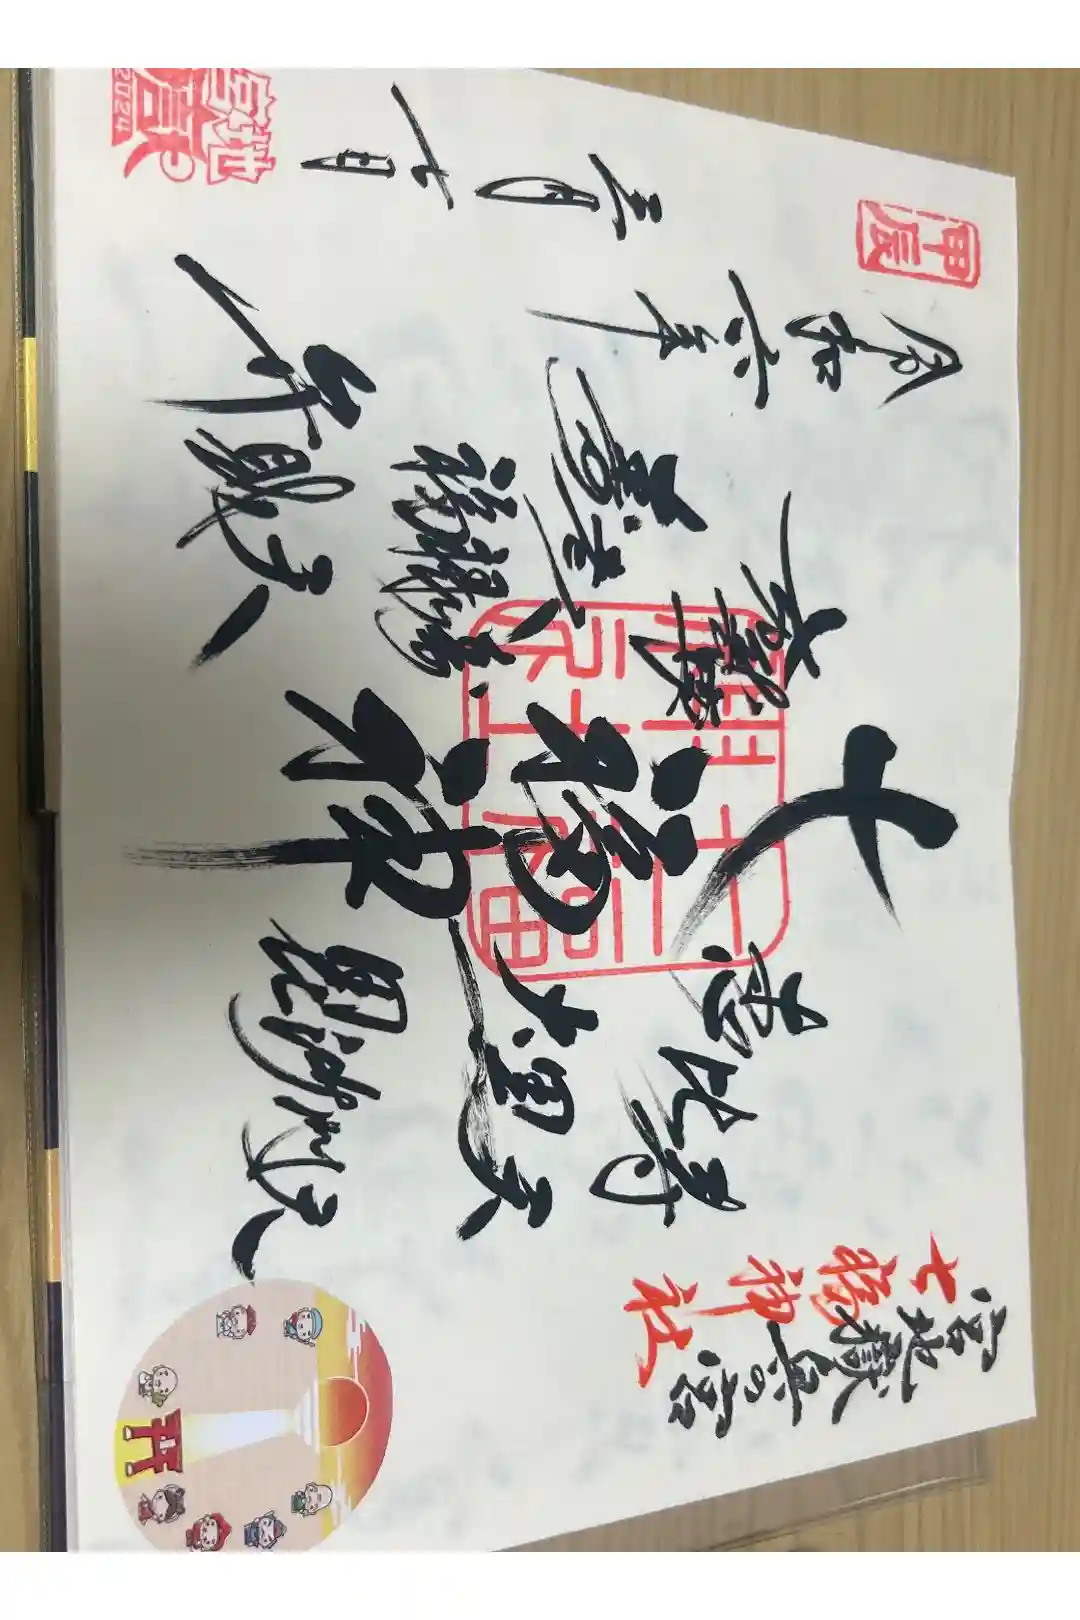 宮地嶽奥の宮
七福神社
恵比寿
大黒天
毘沙門天
七福神
寿老人
福禄寿
弁財天
甲辰
令和六年
三月十日
宮地嶽
2024